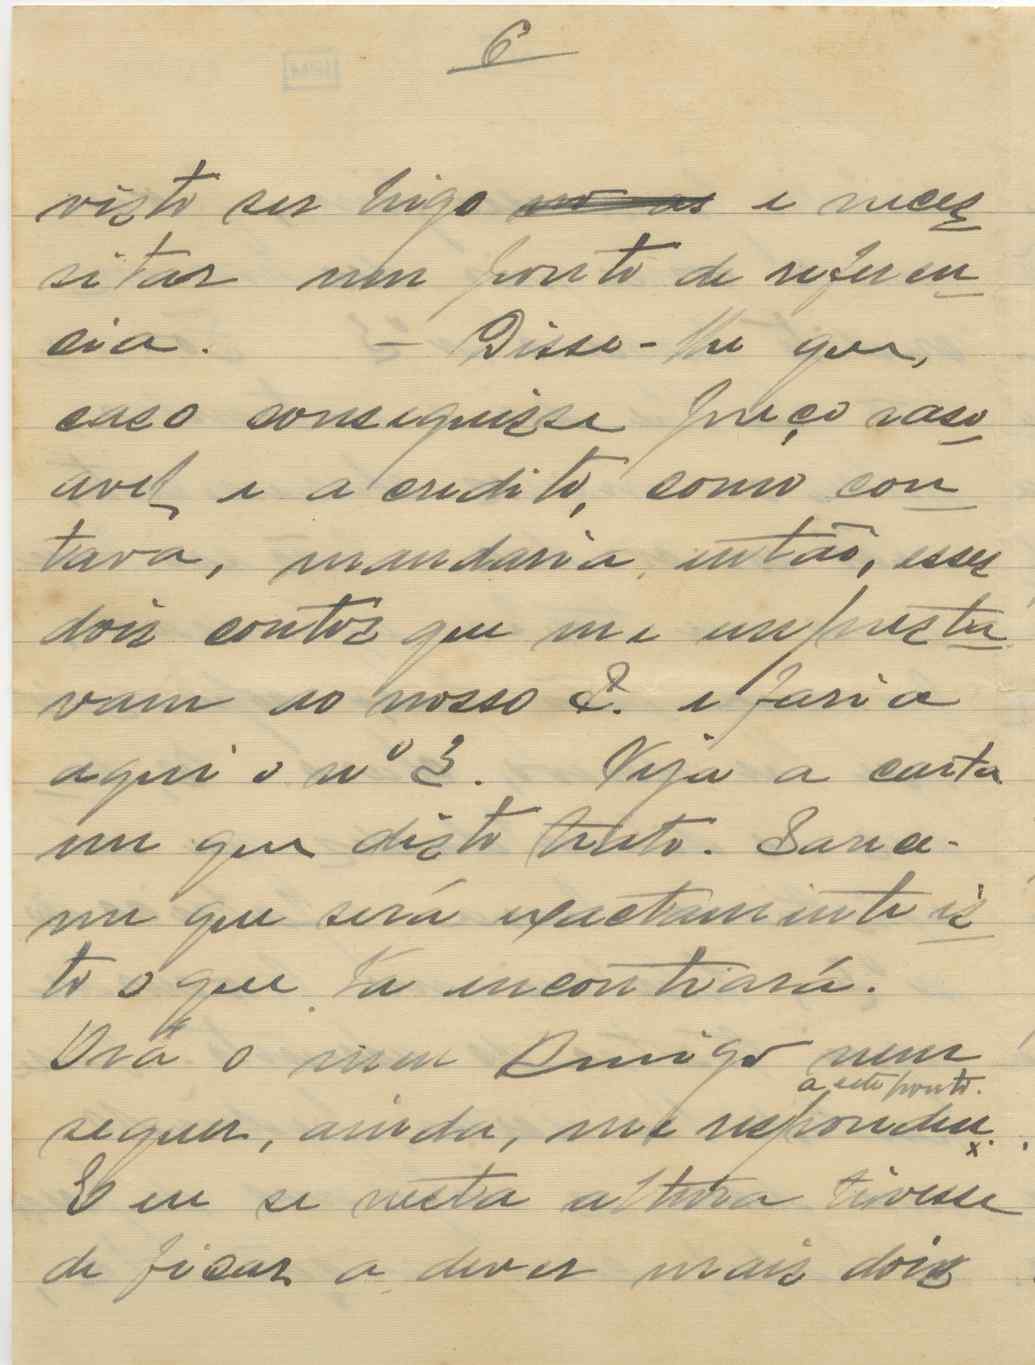 6
visto ser leigo e neces
sitar um ponto de referen
cia. — Disse-lhe que,
caso conseguisse preço raso
avel e a credito, como con
tava, mandaria, então, esses
dois contos que me empresta
vam ao nosso E. e faria
aqui o nº 3. Veja a carta
em que disto trato. Parece-
me que será exactamente is
to o que lá encontrará.
Ora o meu Amigo nem
a este ponto.
sequer, ainda, me respondeu x.
E eu se nesta altura tivesse
de ficar a dever mais dois